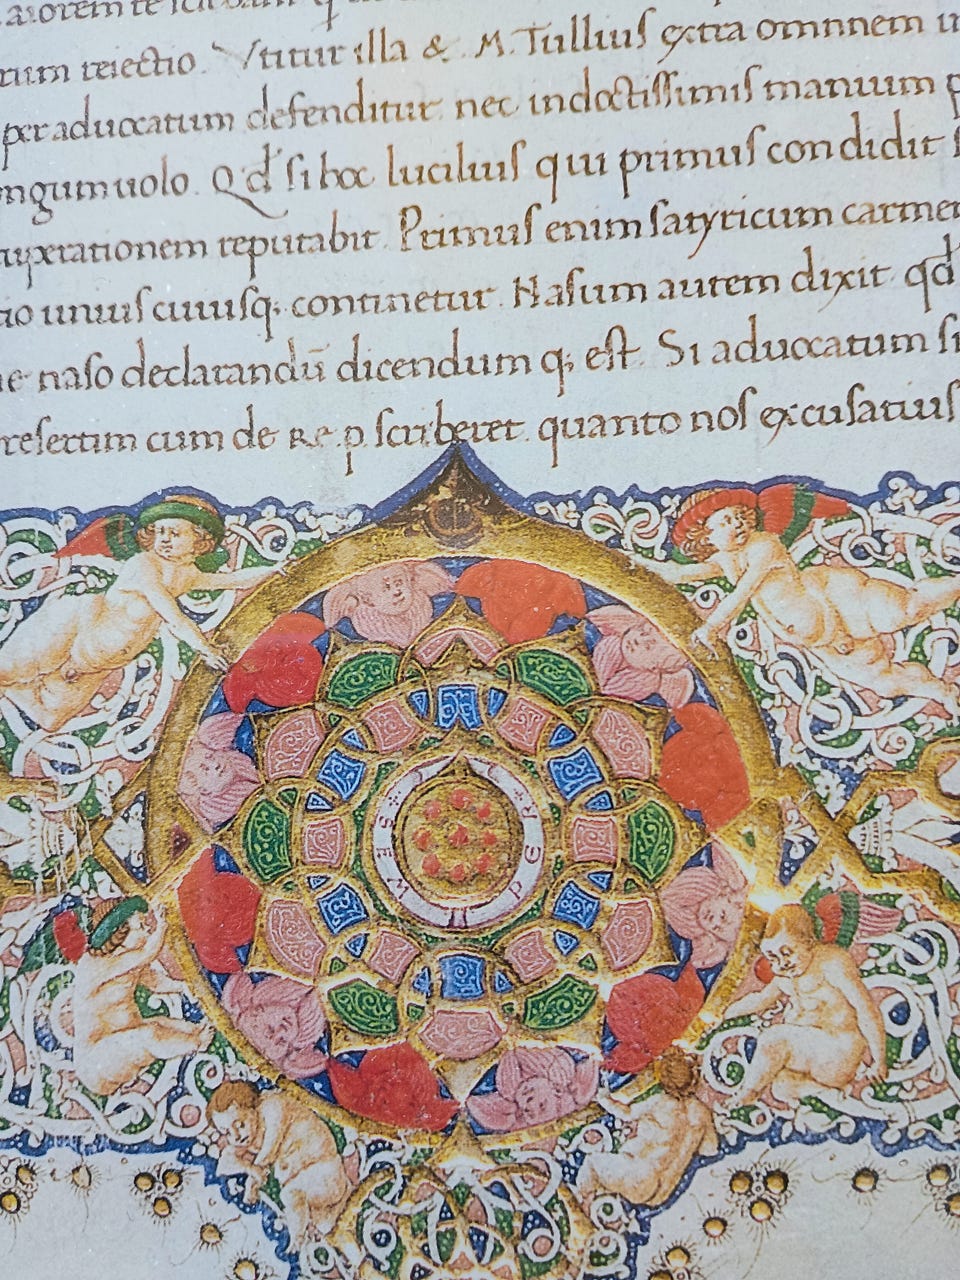 rum reiectio. Vtitur illa & M. Tulliuſ extra omnnem
per aduocatum defenditur nec indoctiſſimiſ manuum p
ngum uolo. Qd̓ ſi hoc luciliuſ qui primuſ condidit ſ
uperationem reputabit. Primuſ enim ſatyricum carmen
tio uniuſ cuiuſq; continetur. Naſum autem dixit qd̓
e naſo declarandū dicendum q; eſt. Si aduocatum ſi
reſertim cum de R.E.P. ſcriberet quanto noſ excuſatiuſ
SEMPER